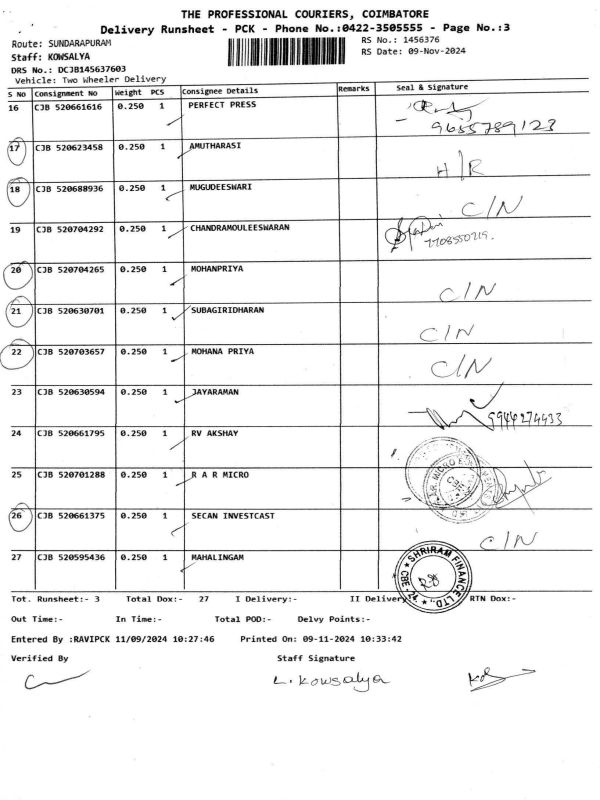 THE PROFESSIONAL COURIERS, COIMBATORE
Delivery Runsheet - PCK - Phone No.:0422-3505555 - Page No.:3
Route: SUNDARAPURAM
RS No.: 1456376
Staff: KOWSALYA
RS Date: 09-Nov-2024
DRS No.: DCJB145637603
Vehicle: Two Wheeler Delivery
S No Consignment No Weight PCS Consignee Details Remarks Seal & Signature
16 CJB 520661616 0.250 1 PERFECT PRESS
9655789123
17 CJB 520623458 0.250 1 AMUTHARASI H/R
18 CJB 520688936 0.250 1 MUGUDEESWARI C/N
19 CJB 520704292 0.250 1 CHANDRAMOULEESWARAN
7708550219.
20 CJB 520704265 0.250 1 MOHANPRIYA C/N
21 CJB 520630701 0.250 1 SUBAGIRIDHARAN C/N
22 CJB 520703657 0.250 1 MOHANA PRIYA C/N
23 CJB 520630594 0.250 1 JAYARAMAN 9944274433
24 CJB 520661795 0.250 1 RV AKSHAY
25 CJB 520701288 0.250 1 R A R MICRO
26 CJB 520661375 0.250 1 SECAN INVESTCAST C/N
27 CJB 520595436 0.250 1 MAHALINGAM
SHRIRAM FINANCE LTD.,
Tot. Runsheet:- 3 Total Dox:- 27 I Delivery:- II Delivery RTN Dox:-
Out Time:- In Time:- Total POD:- Delvy Points:-
Entered By :RAVIPCK 11/09/2024 10:27:46 Printed On: 09-11-2024 10:33:42
Verified By Staff Signature
L. Kowsalya